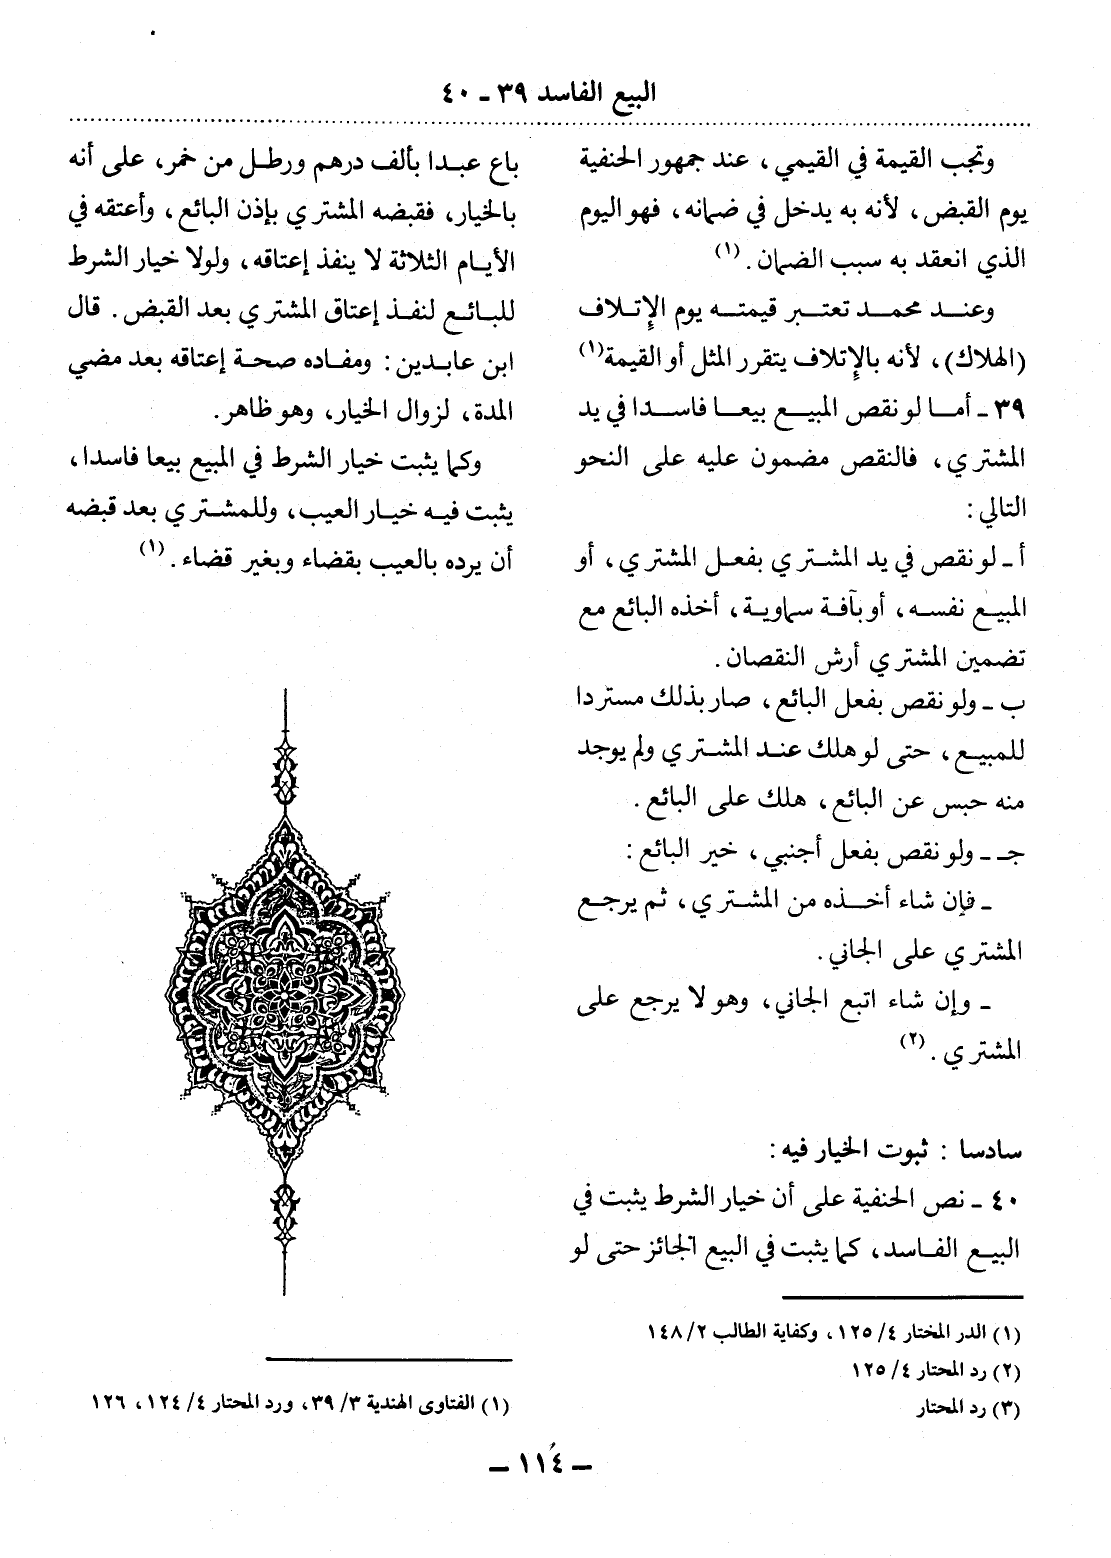 البيع الفاسد ٣٩ ـ ٤٠
وتجب القيمة في القيمي ، عند جمهور الحنفية
يوم القبض ، لأنه به يدخل في ضمانه ، فهو اليوم
الذي انعقد به سبب الضمان . (١)
وعنـد محمـد تعتبـر قيمتـه يوم الإتـلاف
(الهلاك) ، لأنه بالإتلاف يتقرر المثل أو القيمة(١)
٣٩ ـ أمـا لو نقص المبيـع بيعـا فاسـدا في يد
المشتري ، فالنقص مضمون عليه على النحو
التالي :
أ ـ لو نقص في يد المشتري بفعـل المشتري ، أو
المبيـع نفسـه ، أو بآفة سماويـة ، أخذه البائع مع
تضمين المشتري أرش النقصان .
ب ـ ولو نقص بفعل البائع ، صار بذلك مستردا
للمبيـع ، حتى لو هلك عنـد المشتري ولم يوجد
منه حبس عن البائع ، هلك على البائع .
جـ ـ ولو نقص بفعل أجنبي ، خير البائع :
ـ فإن شاء أخـذه من المشتري ، ثم يرجـع
المشتري على الجاني .
ـ وإن شاء اتبع الجاني ، وهو لا يرجع على
المشتري . (٢)
سادسا : ثبوت الخيار فيه :
٤٠ ـ نص الحنفية على أن خيار الشرط يثبت في
البيـع الفـاسد ، كما يثبت في البيع الجائز حتى لو
(١) الدر المختار ٤/ ١٢٥ ، وكفاية الطالب ٢/ ١٤٨
(٢) رد المحتار ٤/ ١٢٥
(٣) رد المحتار
باع عبـدا بألف درهم ورطـل من خمر ، على أنه
بالخيار ، فقبضه المشتري بإذن البائع ، وأعتقه في
الأيـام الثلاثة لا ينفذ إعتاقه ، ولولا خيار الشرط
للبائـع لنفـذ إعتاق المشتري بعد القبض . قال
ابن عابـدين : ومفـاده صحـة إعتاقه بعد مضي
المدة ، لزوال الخيار ، وهو ظاهر .
وكما يثبت خيار الشرط في المبيع بيعا فاسدا ،
يثبت فيـه خيـار العيب ، وللمشتري بعد قبضه
أن يرده بالعيب بقضاء وبغير قضاء . (١)
(١) الفتاوى الهندية ٣/ ٣٩ ، ورد المحتار ٤/ ١٢٤ ، ١٢٦
ـ ١١٤ ـ